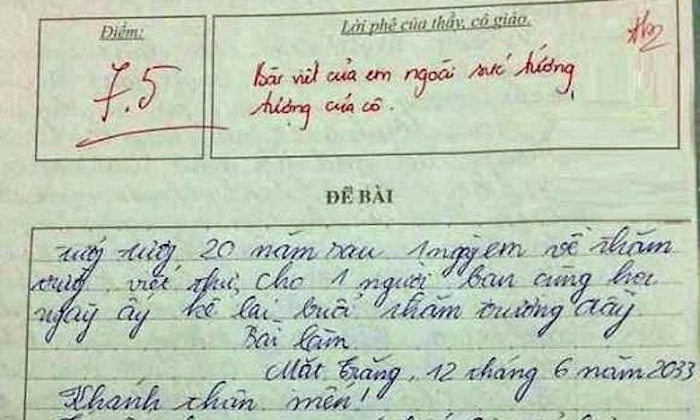 Điểm:
Lời phê của thầy, cô giáo.
7.5
Bài viết của em ngoài sức tưởng
tượng của cô.
ĐỀ BÀI
20 năm sau 1 ngày em về thăm
trường viết thư cho 1 người bạn cùng học
ngày ấy kể lại buổi thăm trường đấy
Bài làm
Mặt trăng, 12 tháng 6 năm 2033
Khánh thân mến!